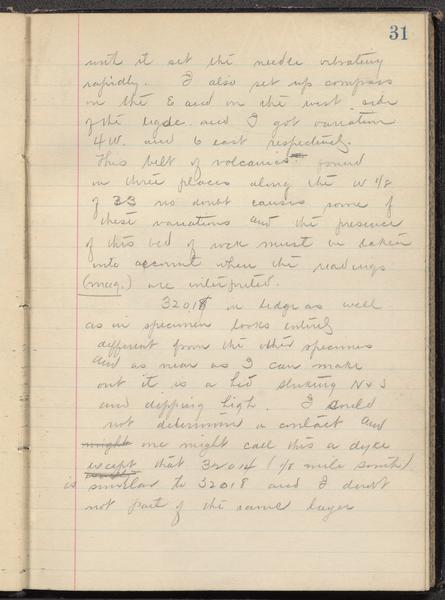 31
until it set the needle vibrating
rapidly. I also set up compass
on the E and on the west side
of the ledge and I got variation
4 W. and 6 east respectively.
This belt of volcanics found
in three places along the W 1/8
of 33 no doubt causes some of
these variations and the presence
of this bed of rock must be taken
into account when the readings
(mag.) are interpreted.
32018 in ledge as well
as in specimen looks entirely
different from the other specimens
and as near as I can make
out it is a bed striking N & S
and dipping high. I could
not determine a contact and
might one might call this a dyke
except that 32014 (1/8 mile south)
is similar to 32018 and I doubt
not part of the same layer